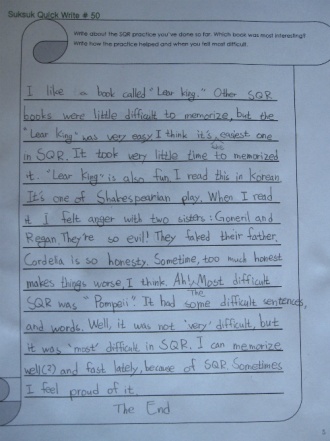 Suksuk Quick Write # 50
Write about the SQR practice you've done so far. Which book was most interesting?
Write how the practice helped and when you felt most difficult.
I like a book called "Lear king." Other SQR
books were little difficult to memorize, but the
"Lear King" was very easy I think it's easiest one
in SQR. It took very little time to memorized
it. "Lear King" is also fun. I read this in Korean.
It's one of Shakespearian play. When I read
it I felt anger with two sisters: Goneril and
Regan They're so evil! They faked their father.
Cordelia is so honesty. Sometime, too much honest
makes things worse, I think. Ah! Most difficult
SQR was "Pompeii". It had some difficult sentences,
The
and words. Well, it was not 'very' difficult, but
it was 'most' difficult in SQR. I can memorize
well(?) and fast lately, because of SQR. Sometimes
I feel proud of it.
The End